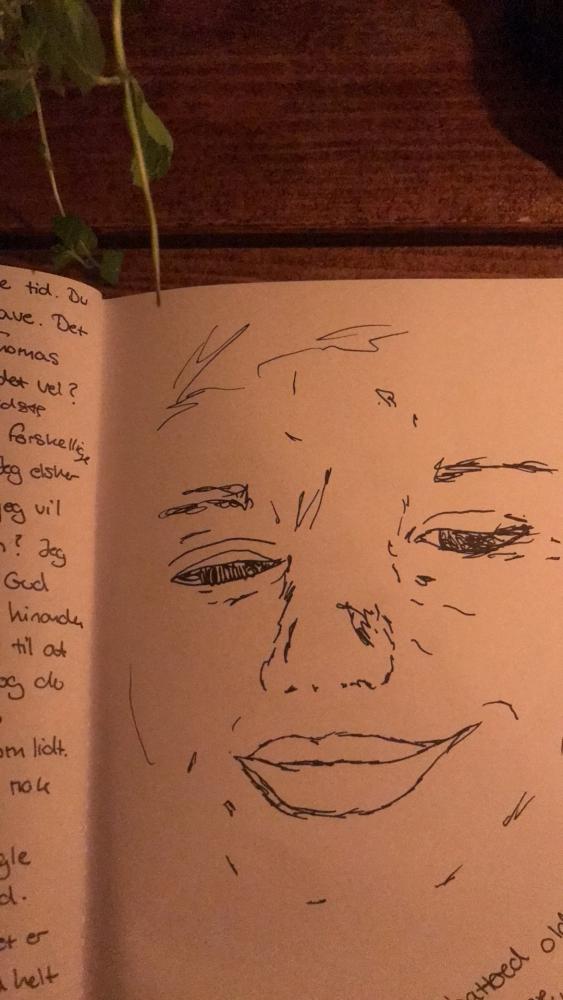 e tid. Du
ave. Det
Thomas
det vel?
forskellige
Jeg elsker
jeg vil
? Jeg
Gud
hinanden
til at
og du
om lidt.
nok
gle
d.
et er
helt